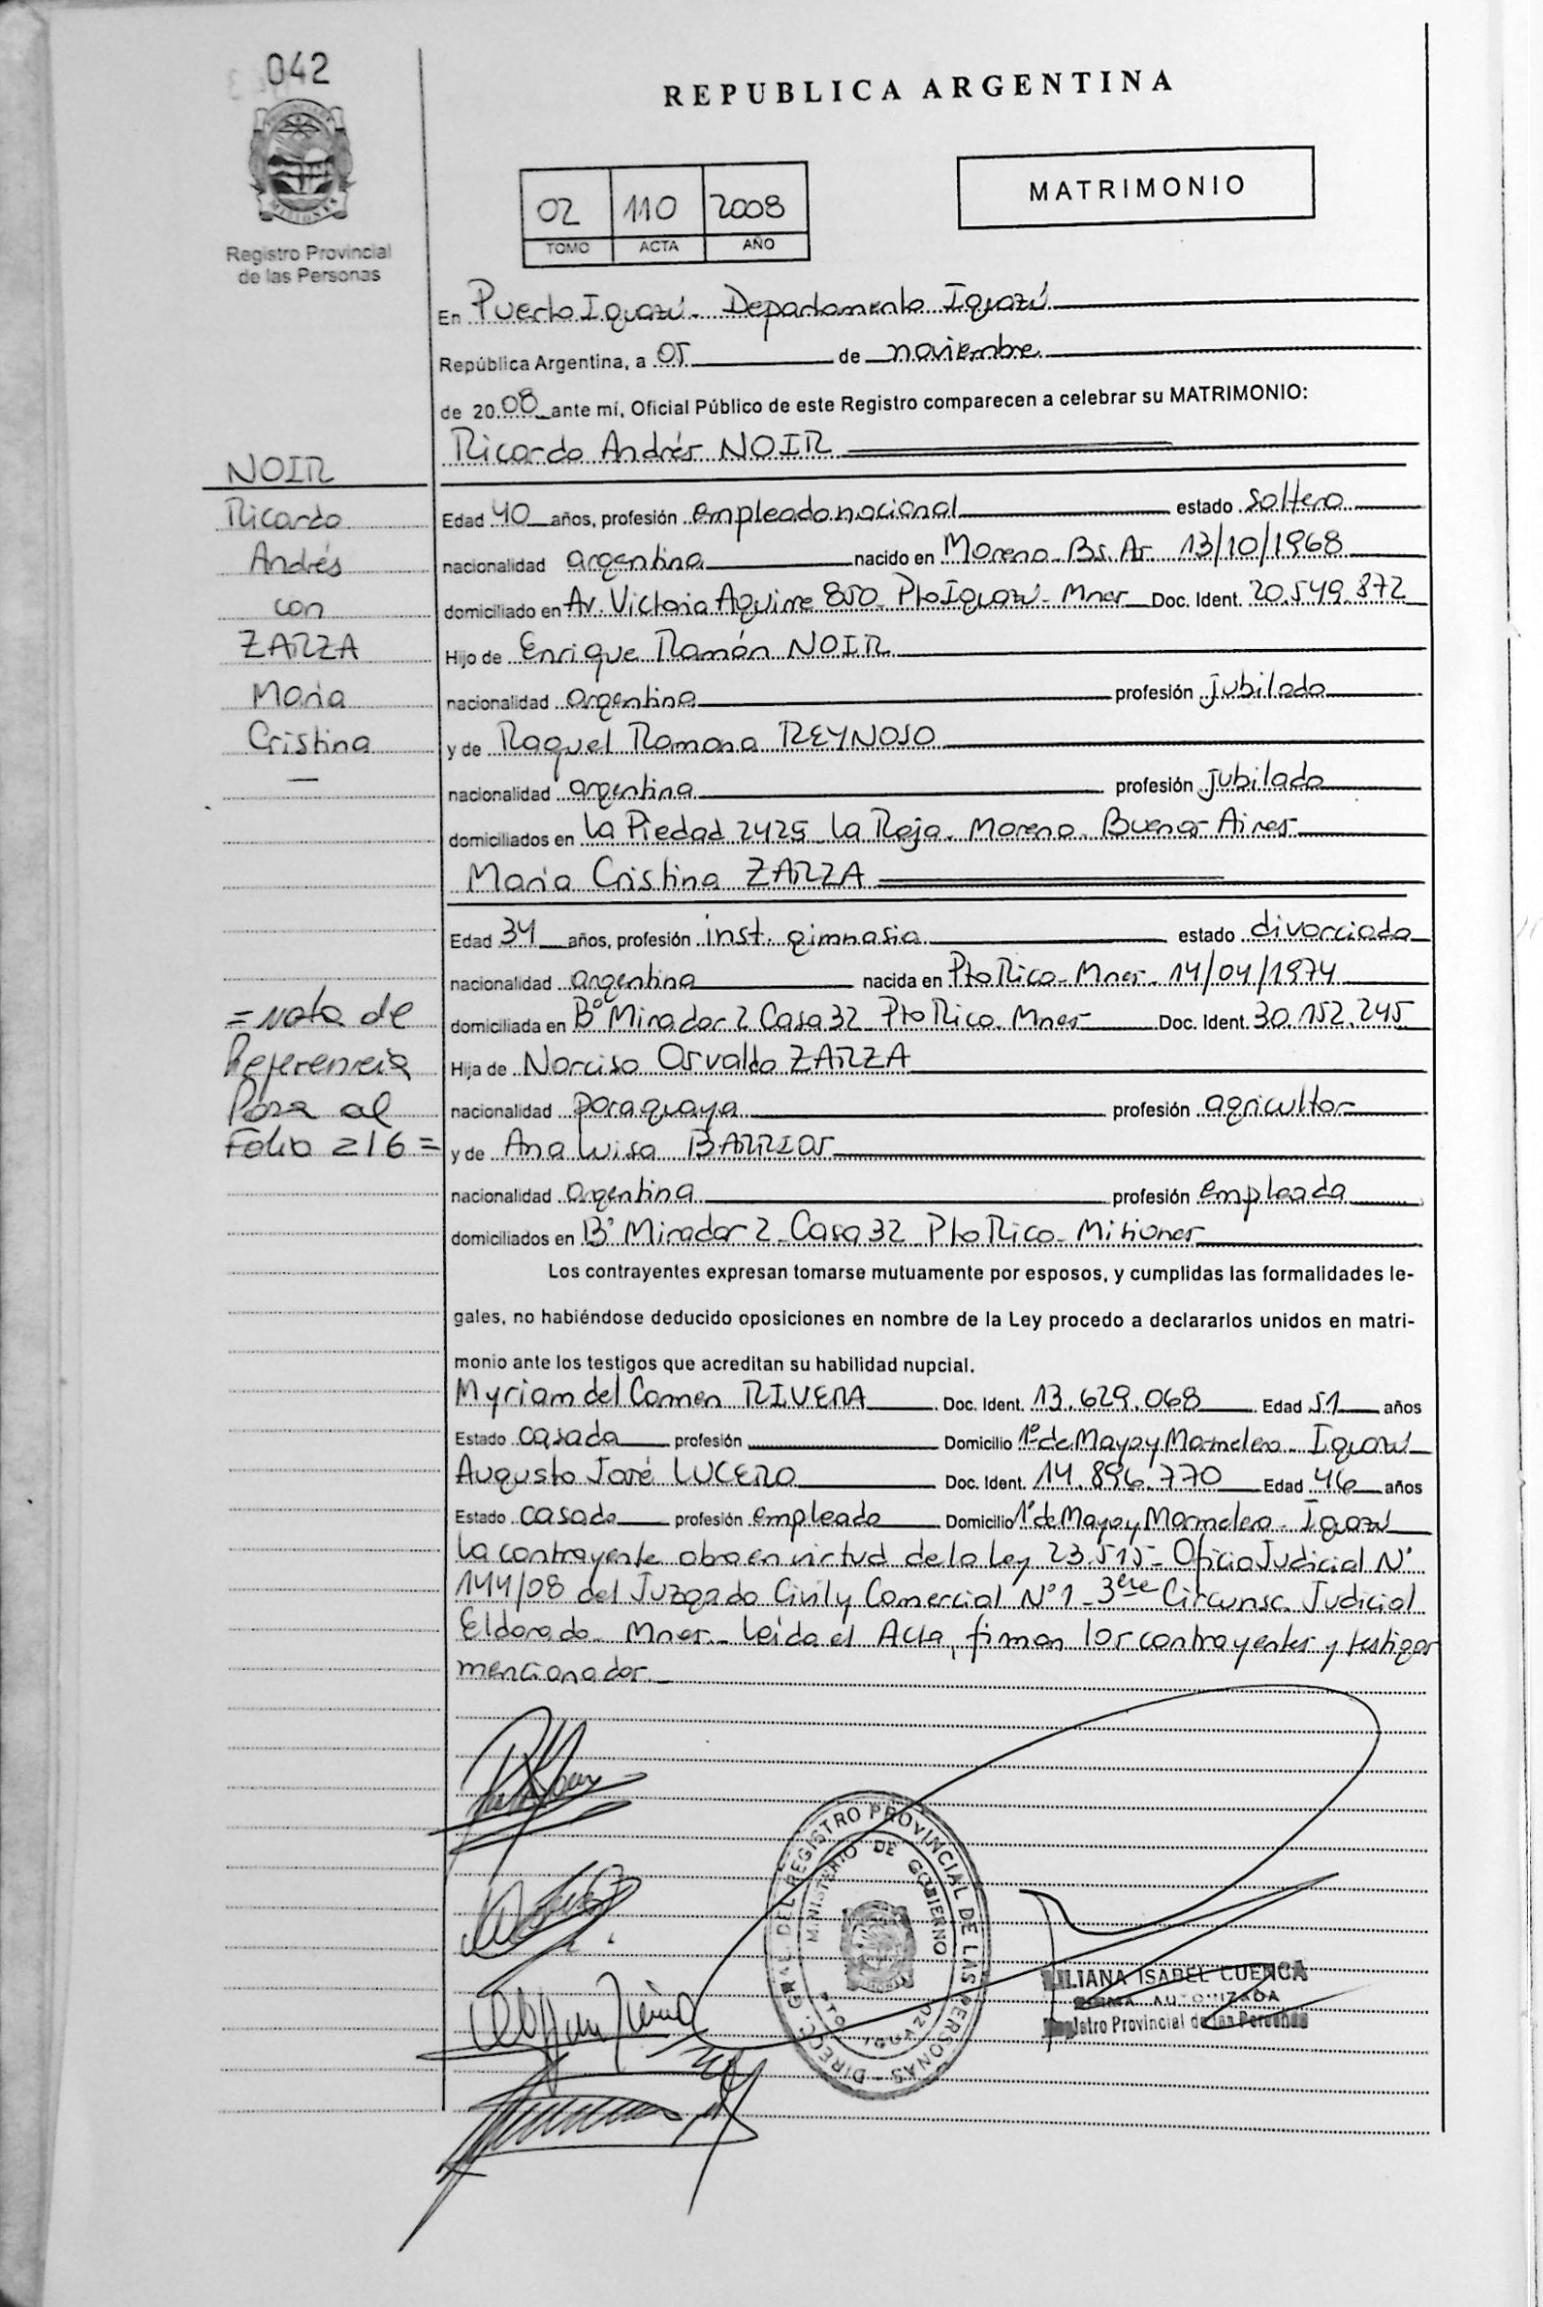 042
Registro Provincial
de las Personas
REPUBLICA ARGENTINA
02 110 2008
TOMO ACTA AÑO
MATRIMONIO
En Puerto Iguazú - Departamento Iguazú
República Argentina, a 05 de noviembre
de 2008 ante mí, Oficial Público de este Registro comparecen a celebrar su MATRIMONIO:
Ricardo Andrés NOIR
NOIR
Ricardo
Andrés
con
ZARZA
María
Cristina
Edad 40 años, profesión empleado nacional estado soltero
nacionalidad argentina nacido en Moreno Bs. As. 13/10/1968
domiciliado en Av. Victoria Aguirre 850 - Pto Iguazú - Mnes Doc. Ident. 20.549.872
Hijo de Enrique Ramón NOIR
nacionalidad argentina profesión jubilado
y de Raquel Ramona REYNOSO
nacionalidad argentina profesión jubilada
domiciliados en La Piedad 2425 La Reja - Moreno - Buenos Aires
María Cristina ZARZA
Edad 34 años, profesión inst. gimnasia estado divorciada
nacionalidad argentina nacida en Pto Rico - Mnes - 14/04/1974
domiciliada en Bº Mirador 2 Casa 32 Pto Rico - Mnes Doc. Ident. 30.152.245
Hija de Narciso Osvaldo ZARZA
nacionalidad paraguaya profesión agricultor
y de Ana Luisa BARRIOS
nacionalidad argentina profesión empleada
domiciliados en Bº Mirador 2 - Casa 32 - Pto Rico - Misiones
= Nota de
Referencia
Pasa al
Folio 216 =
Los contrayentes expresan tomarse mutuamente por esposos, y cumplidas las formalidades le-
gales, no habiéndose deducido oposiciones en nombre de la Ley procedo a declararlos unidos en matri-
monio ante los testigos que acreditan su habilidad nupcial.
Myriam del Carmen RIVERA Doc. Ident. 13.629.068 Edad 51 años
Estado casada profesión Domicilio 1º de Mayo y Marmelero - Iguazú
Augusto José LUCERO Doc. Ident. 14.896.770 Edad 46 años
Estado casado profesión empleado Domicilio 1º de Mayo y Marmelero - Iguazú
La contrayente obra en virtud de la Ley 23.515 - Oficio Judicial Nº
144/08 del Juzgado Civil y Comercial Nº 1 - 3era Circunsc. Judicial
Eldorado - Mnes - Leída el Acta, firman los contrayentes y testigos
mencionados.
DIRECC. GRAL. DEL REGISTRO PROVINCIAL DE LAS PERSONAS
MINISTERIO DE GOBIERNO
PTO. IGUAZU
LILIANA ISABEL CUENCA
FIRMA AUTORIZADA
Registro Provincial de las Personas